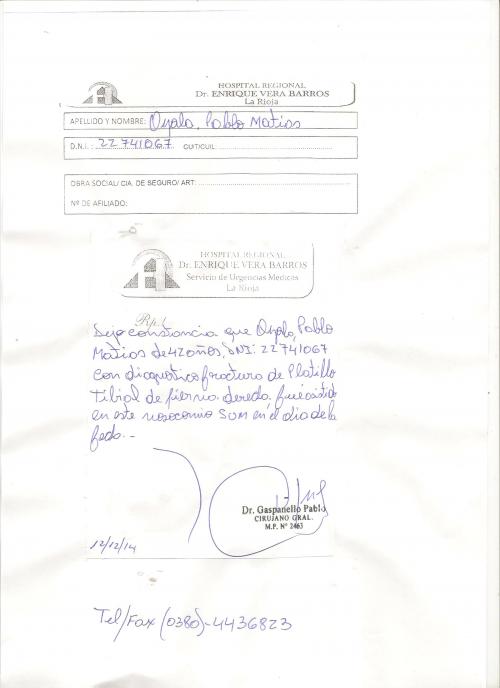 HOSPITAL REGIONAL
Dr. ENRIQUE VERA BARROS
La Rioja
APELLIDO Y NOMBRE: Oyola, Pablo Matias
D.N.I. : 22741067 CUIT/CUIL:
OBRA SOCIAL/ CIA. DE SEGURO/ ART:
Nº DE AFILIADO:
HOSPITAL REGIONAL
Dr. ENRIQUE VERA BARROS
Servicio de Urgencias Médicas
La Rioja
Rp./
Dejo constancia que Oyola, Pablo
Matias de 42 años, DNI: 22741067
con diagnostico fractura de Platillo
Tibial de pierna derecha fue asistido
en este nosocomio SUM en el dia de la
fecha.-
Dr. Gaspanello Pablo
CIRUJANO GRAL.
M.P. Nº 2463
12/12/14
Tel/Fax (0380)-4436823